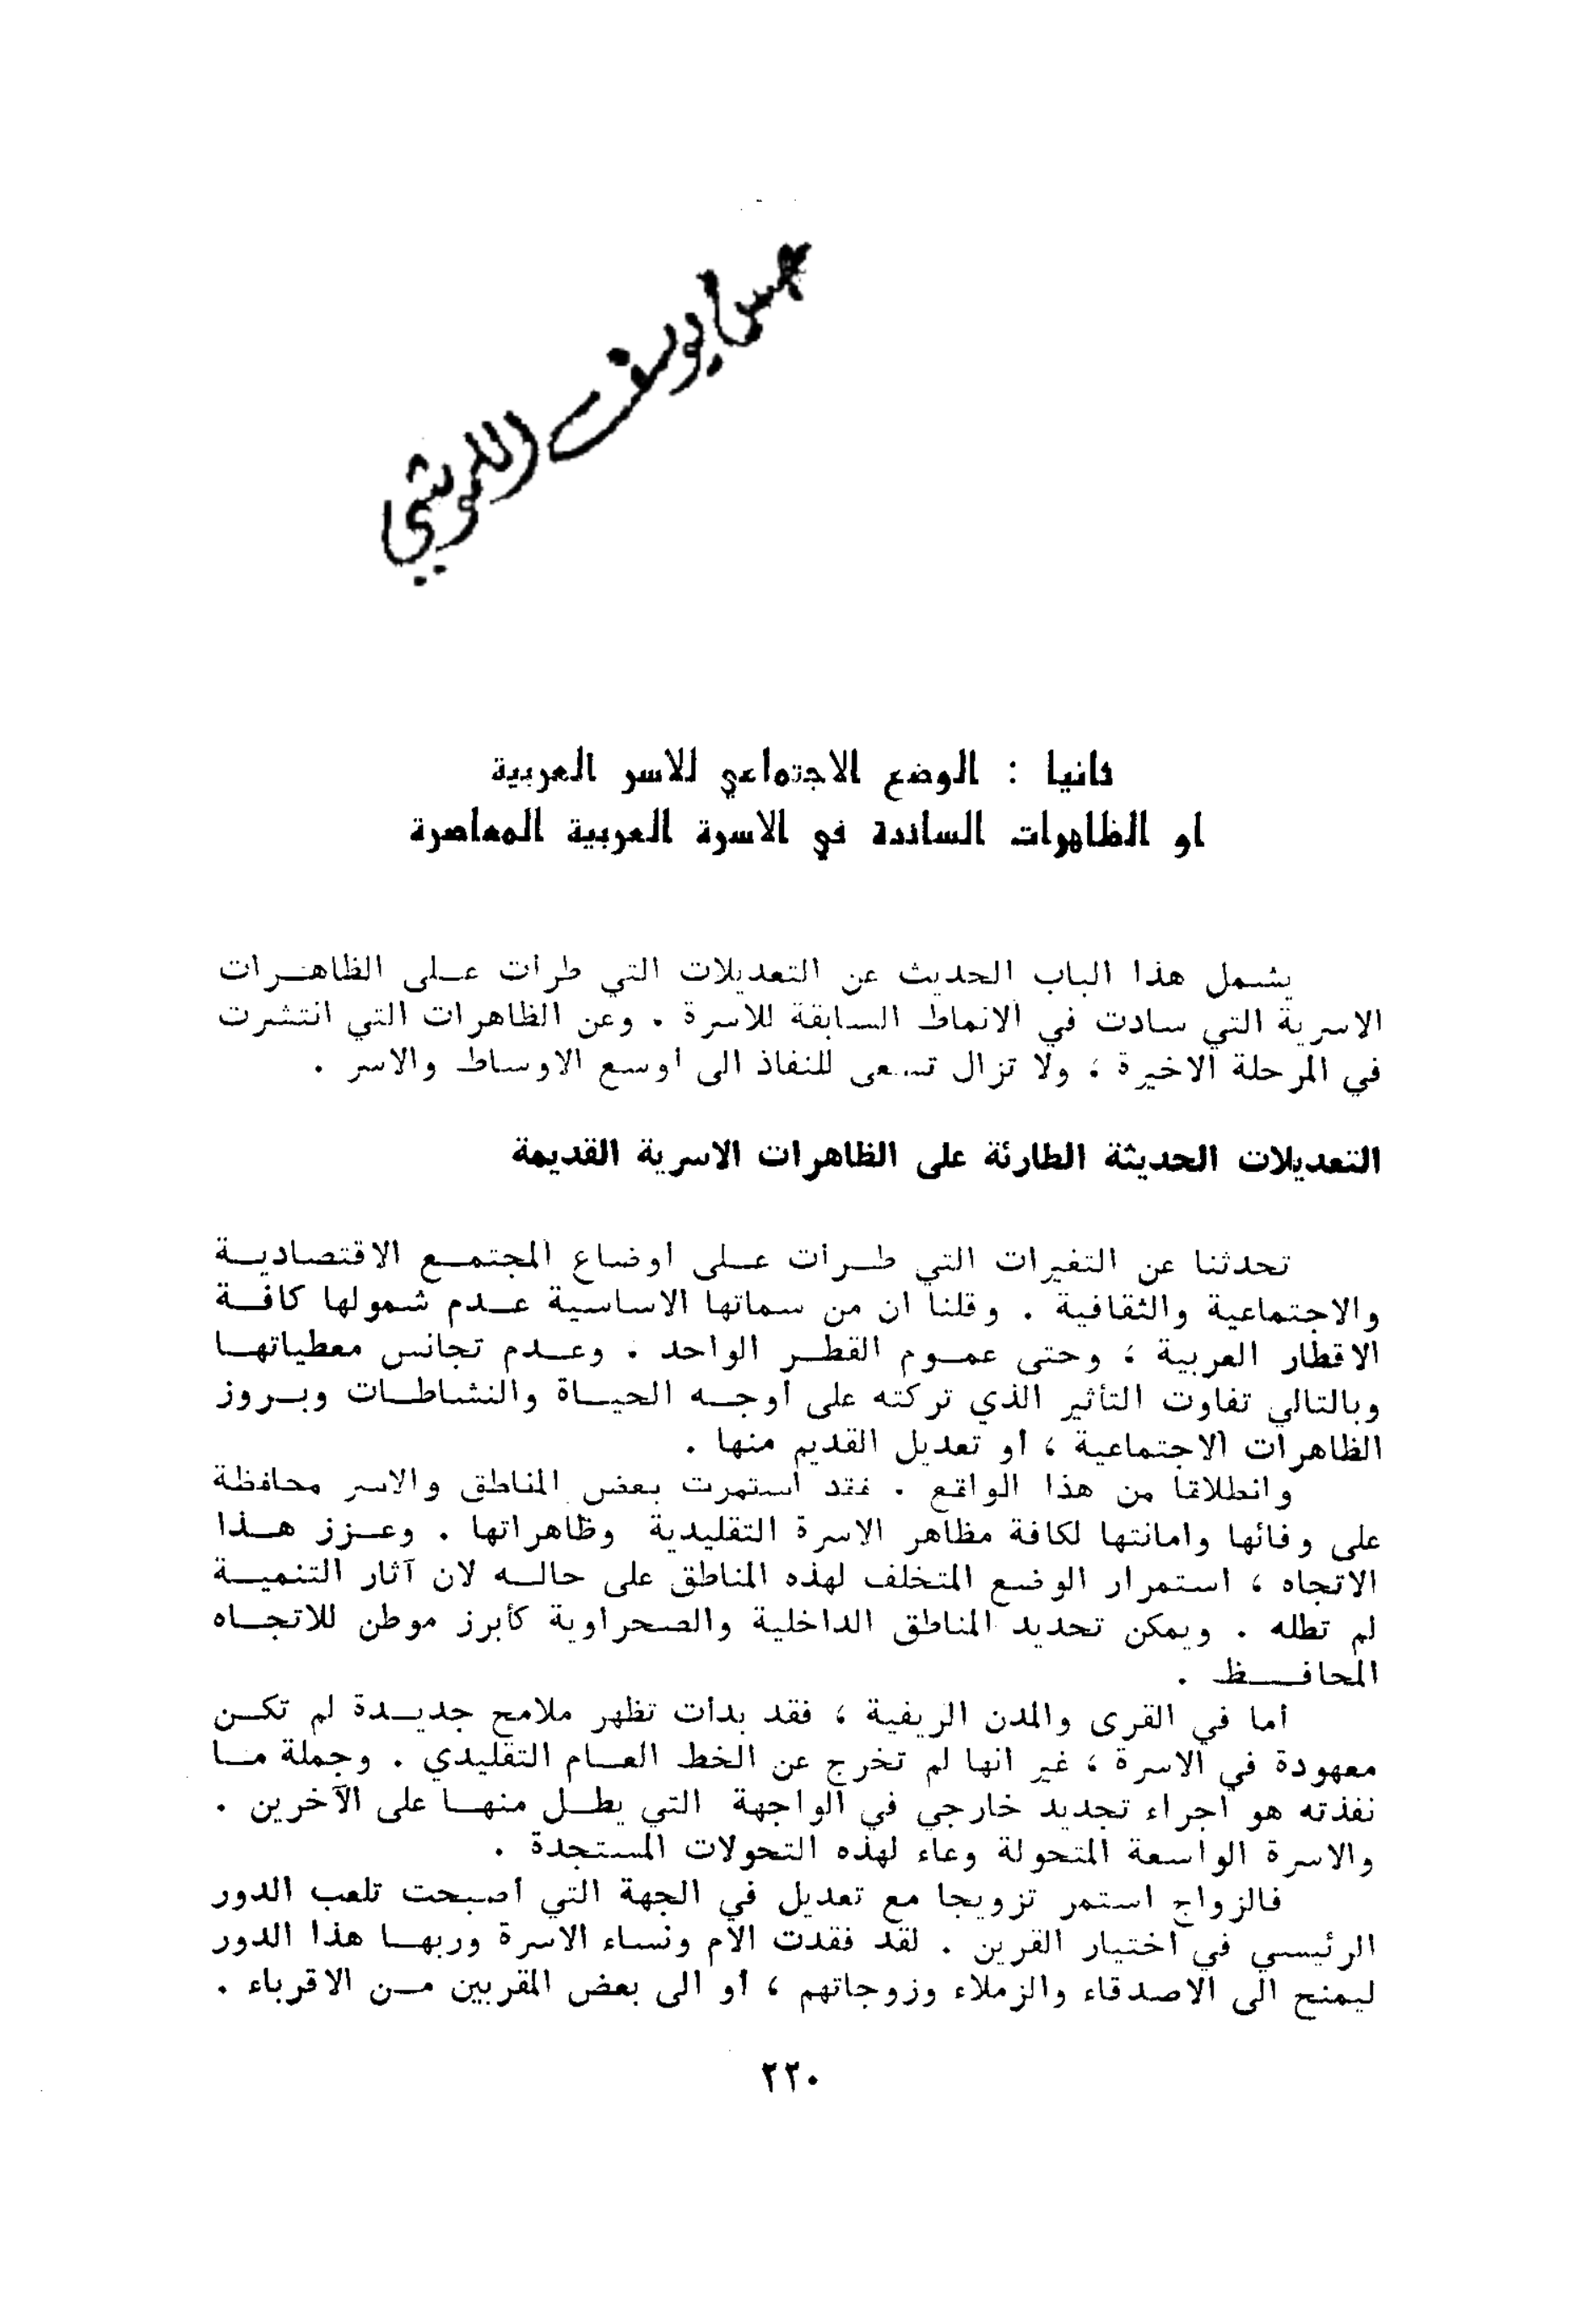 حسن يوسف اللموشي
ثانيا : الوضع الاجتماعي للاسر العربية
او الظاهرات السائدة في الاسرة العربية المعاصرة
يشمل هذا الباب الحديث عن التعديلات التي طرأت على الظاهرات
الاسرية التي سادت في الانماط السابقة للاسرة . وعن الظاهرات التي انتشرت
في المرحلة الاخيرة ، ولا تزال تسعى للنفاذ الى اوسع الاوساط والاسر .
التعديلات الحديثة الطارئة على الظاهرات الاسرية القديمة
تحدثنا عن التغيرات التي طرأت على اوضاع المجتمع الاقتصادية
والاجتماعية والثقافية . وقلنا ان من سماتها الاساسية عدم شمولها كافة
الاقطار العربية ، وحتى عموم القطر الواحد . وعدم تجانس معطياتها
وبالتالي تفاوت التأثير الذي تركته على أوجه الحياة والنشاطات وبروز
الظاهرات الاجتماعية ، أو تعديل القديم منها .
وانطلاقا من هذا الواقع . فقد استمرت بعض المناطق والاسر محافظة
على وفائها وامانتها لكافة مظاهر الاسرة التقليدية وظاهراتها . وعزز هذا
الاتجاه ، استمرار الوضع المتخلف لهذه المناطق على حاله لان آثار التنمية
لم تطله . ويمكن تحديد المناطق الداخلية والصحراوية كأبرز موطن للاتجاه
المحافظ .
أما في القرى والمدن الريفية ، فقد بدأت تظهر ملامح جديدة لم تكن
معهودة في الاسرة ، غير انها لم تخرج عن الخط العام التقليدي . وجملة ما
نفذته هو اجراء تجديد خارجي في الواجهة التي يطل منها على الآخرين .
والاسرة الواسعة المتحولة وعاء لهذه التحولات المستجدة .
فالزواج استمر تزويجا مع تعديل في الجهة التي أصبحت تلعب الدور
الرئيسي في اختيار القرين . لقد فقدت الام ونساء الاسرة وربها هذا الدور
ليمنح الى الاصدقاء والزملاء وزوجاتهم ، أو الى بعض المقربين من الاقرباء .
٢٢٠